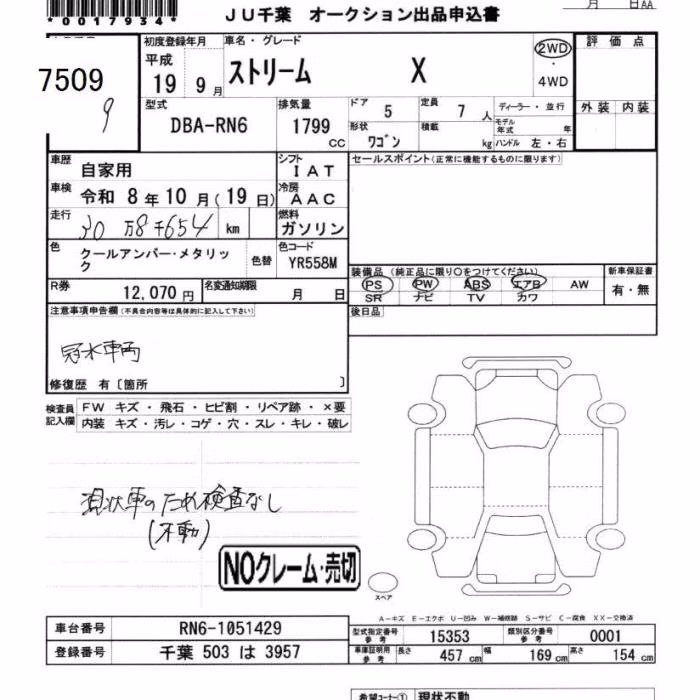 *0017934*
JU千葉 オークション出品申込書
月 日AA
7509
9
初度登録年月
平成
19 9月
車名・グレード
ストリーム X
2WD
・
4WD
評価点
外装 内装
型式
DBA-RN6
排気量
1799
CC
ドア 5
定員 7人
形状 ワゴン
積載 kg
ディーラー・並行
モデル年式 年
ハンドル 左・右
車歴 自家用
シフト IAT
車検 令和 8年10月(19日)
冷房 AAC
走行 30万8千654 km
燃料 ガソリン
色 クールアンバー・メタリック
色替
色コード YR558M
R券 12,070円
名変通知期限 月 日
セールスポイント(正常に機能するものに限ります)
装備品(純正品に限り○をつけてください)
PS PW ABS エアB AW
SR ナビ TV カワ
新車保証書
有・無
後日品
注意事項申告欄(不具合内容等は具体的に記入して下さい)
冠水車両
修復歴 有〔箇所 〕
検査員記入欄
FW キズ・飛石・ヒビ割・リペア跡・×要
内装 キズ・汚レ・コゲ・穴・スレ・キレ・破レ
現状車のため検査なし
(不動)
NOクレーム・売切
スペア
A-キズ E-エクボ U-凹み W-補修跡 S-サビ C-腐食 XX-交換済
車台番号 RN6-1051429
登録番号 千葉 503 は 3957
型式指定番号参考 15353
類別区分番号参考 0001
車庫証明用参考 長さ 457cm 幅 169cm 高さ 154cm
希望コーナー① 現状不動